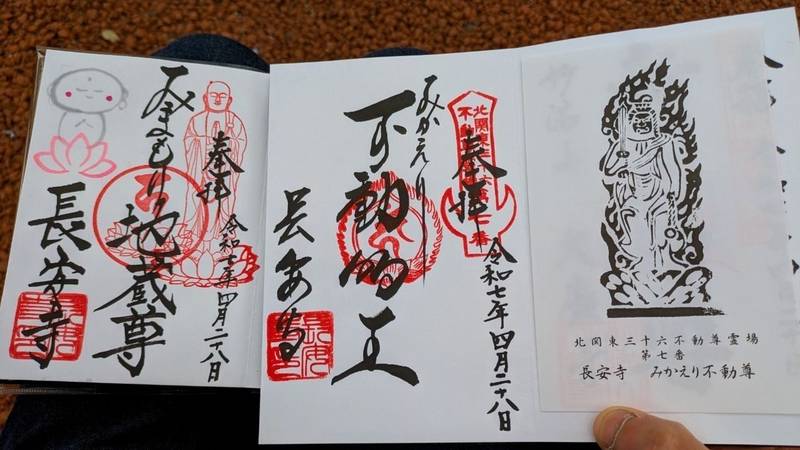 奉拝
令和七年四月二十八日
みまもり地蔵尊
長安寺
奉拝
令和七年四月二十八日
みかえり
不動明王
長安寺
北関東三十六不動尊霊場
第七番
長安寺 みかえり不動尊